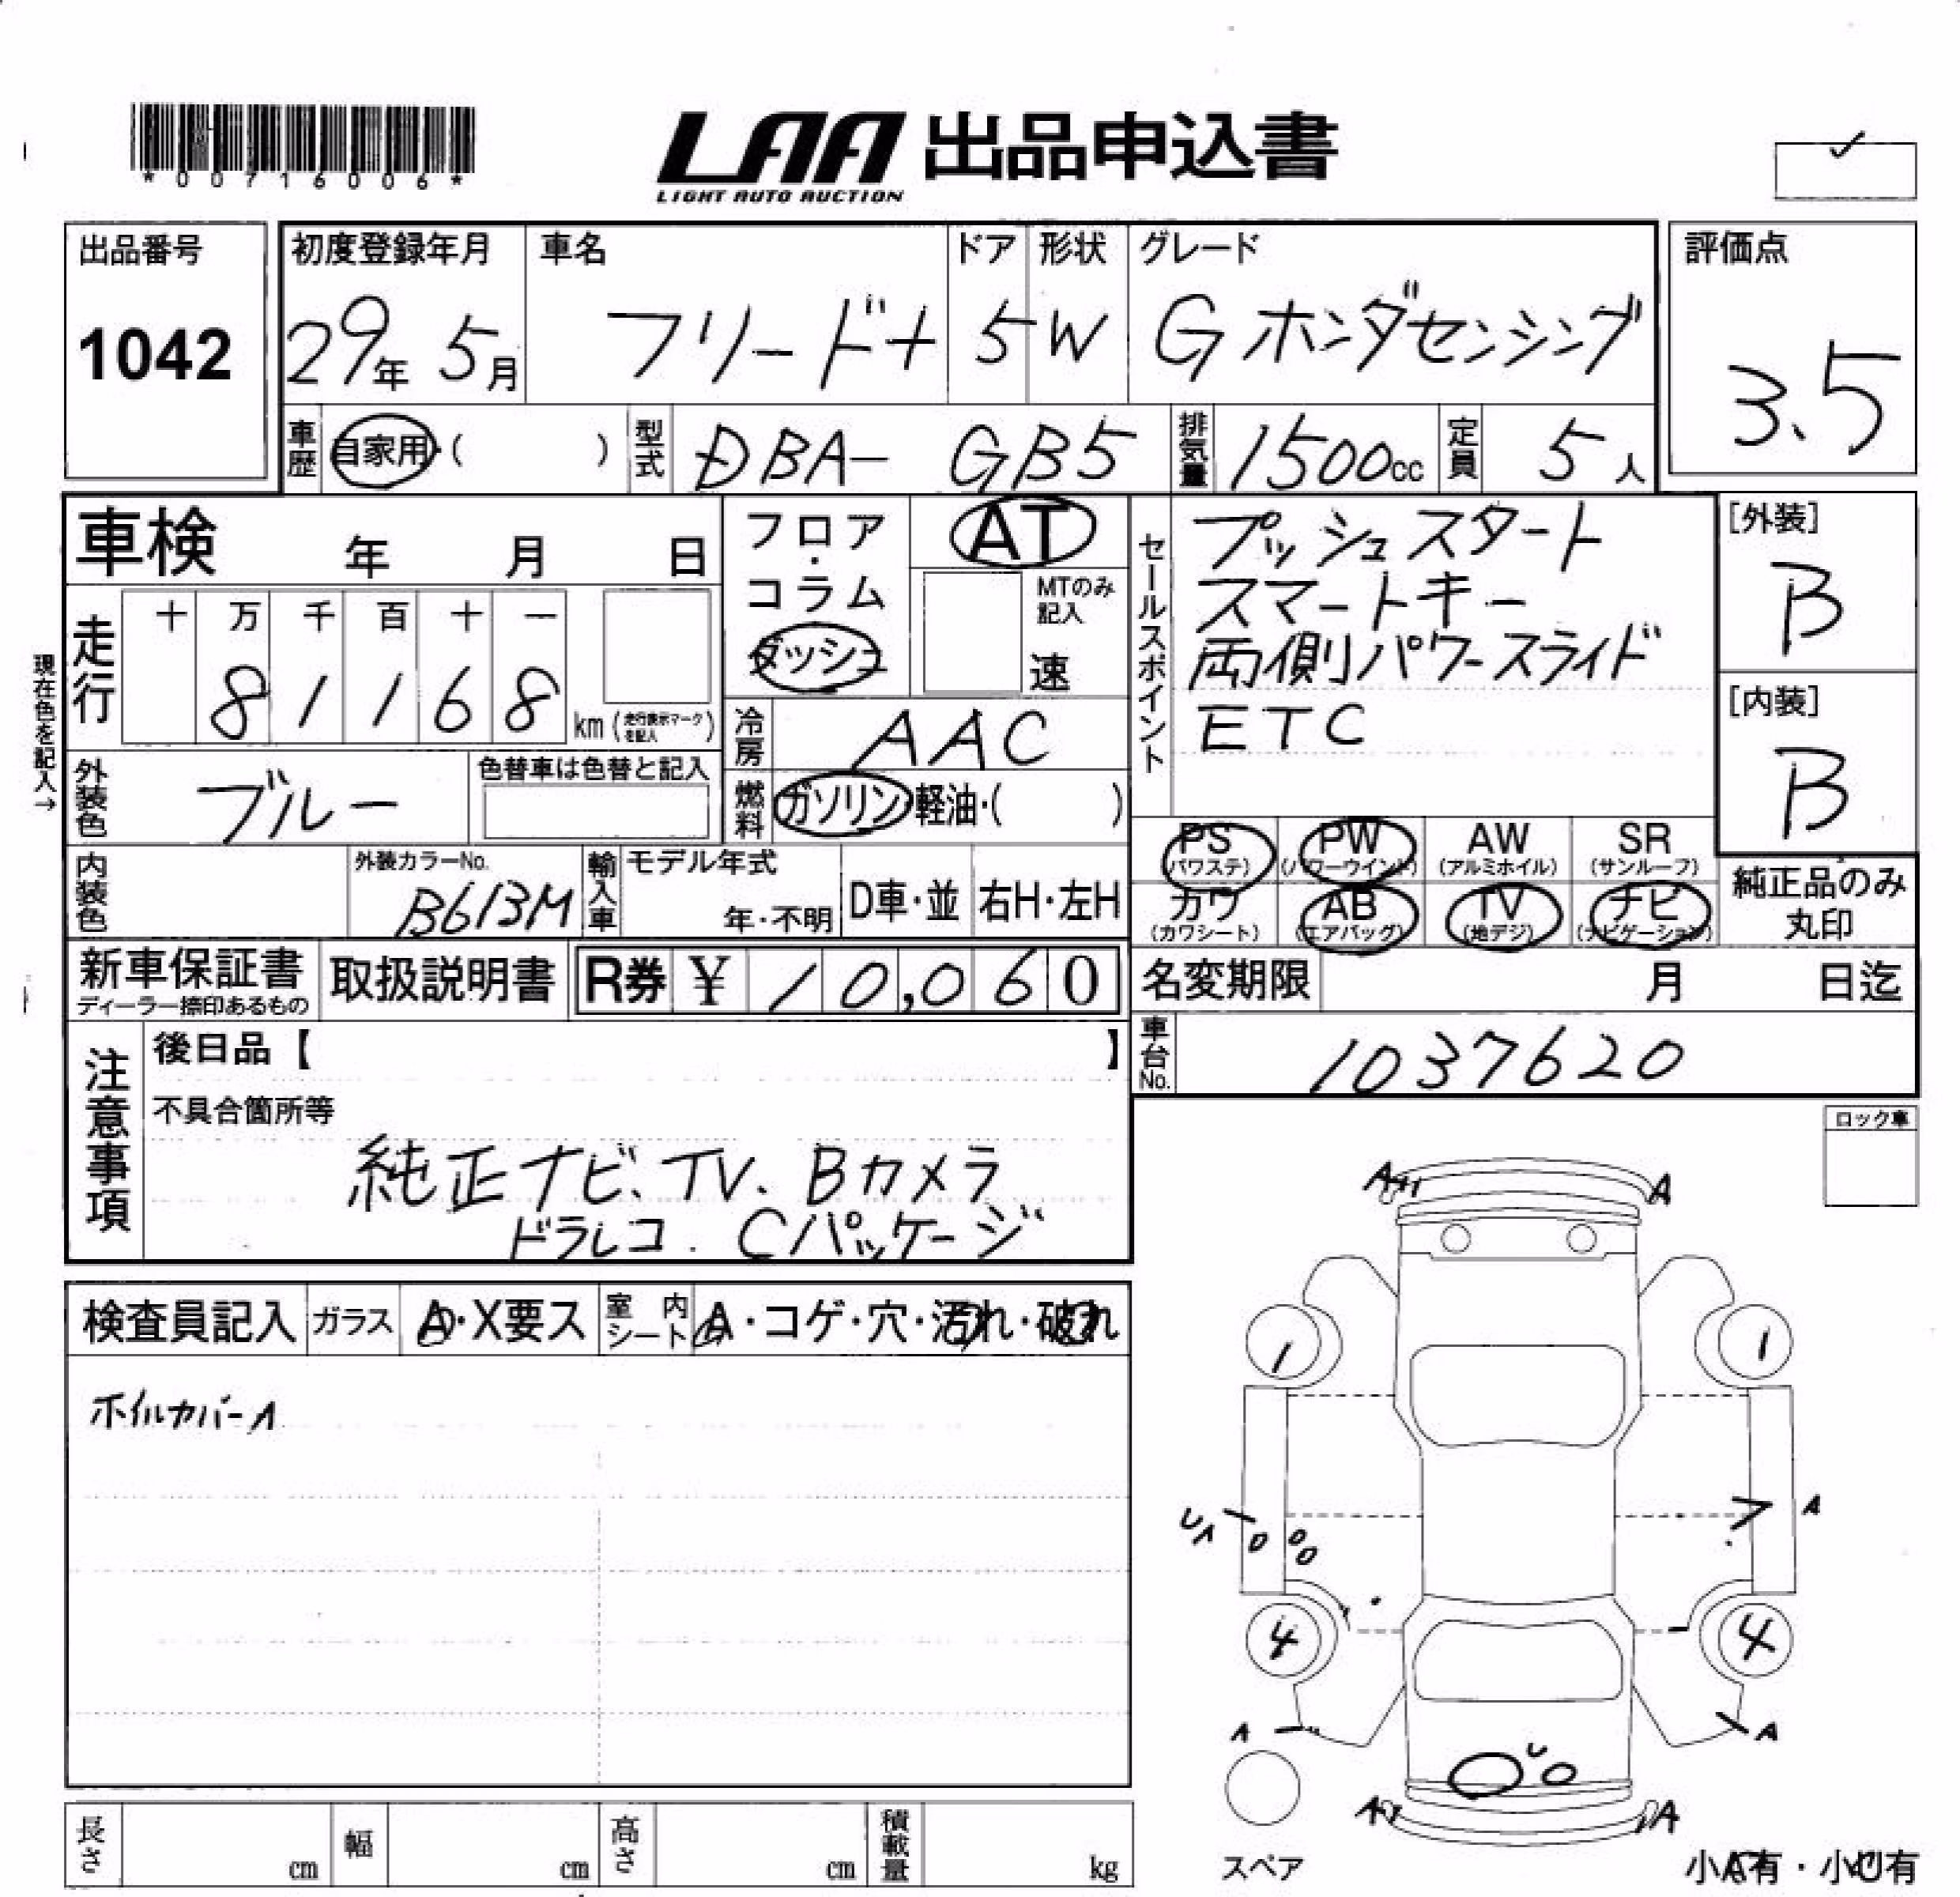 *00716006*
LAA 出品申込書
LIGHT AUTO AUCTION
出品番号
1042
初度登録年月
29年 5月
車名
フリード+
ドア
5
形状
W
グレード
G ホンダセンシング
評価点
3.5
車歴
自家用・( )
型式
DBA- GB5
排気量
1500cc
定員
5人
車検 年 月 日
フロア・コラム
ダッシュ
AT
MTのみ記入
速
セールスポイント
プッシュスタート
スマートキー
両側パワースライド
ETC
[外装]
B
[内装]
B
現在色を記入→
走行
十 万 千 百 十 一
8 1 1 6 8
km (走行表示マークを記入)
冷房
AAC
外装色
ブルー
色替車は色替と記入
燃料
ガソリン・軽油・( )
内装色
外装カラーNo.
B613M
輸入車
モデル年式
年・不明
D車・並
右H・左H
PS (パワステ)
PW (パワーウインド)
AW (アルミホイル)
SR (サンルーフ)
カワ (カワシート)
AB (エアバッグ)
TV (地デジ)
ナビ (ナビゲーション)
純正品のみ丸印
新車保証書
ディーラー捺印あるもの
取扱説明書
R券 ¥ 10,060
名変期限 月 日迄
車台No.
1037620
注意事項
後日品【 】
不具合箇所等
純正ナビ、TV、Bカメラ
ドラレコ. Cパッケージ
ロック車
検査員記入
ガラス
A・X要ス
室内シート
A・コゲ・穴・汚れ・破れ
ホイルカバーA
A
A
1
1
UA
A
4
4
A
A
U
A
A
スペア
小A有・小U有
長さ cm
幅 cm
高さ cm
積載量 kg